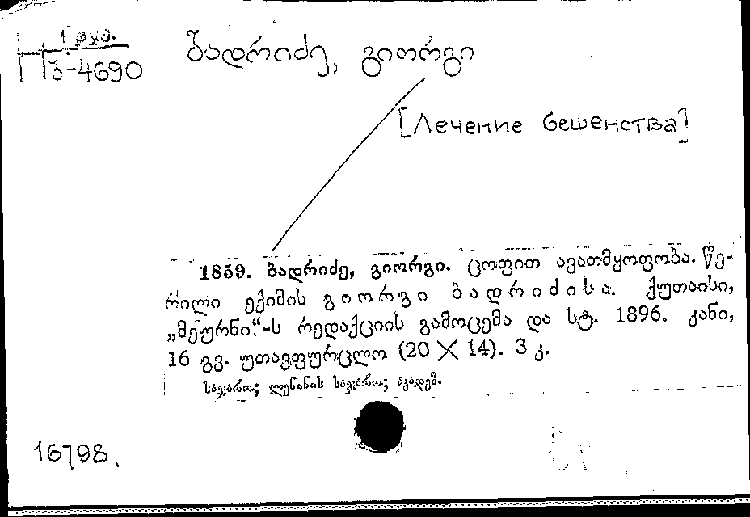 1 ეგზ.
ნ3-4690
ბადრიძე, გიორგი
[Лечение бешенства]
1859. ბადრიძე, გიორგი. ცოფით ავათმყოფობა. წე-
რილი ექიმის გიორგი ბადრიძისა. ქუთაისი,
„მეურნი“-ს რედაქციის გამოცემა და სტ. 1896. კანი,
16 გვ. უთავფურცლო (20 X 14). 3 კ.
საჯარო; ლენინის საჯარო; აკადემ.
16798.